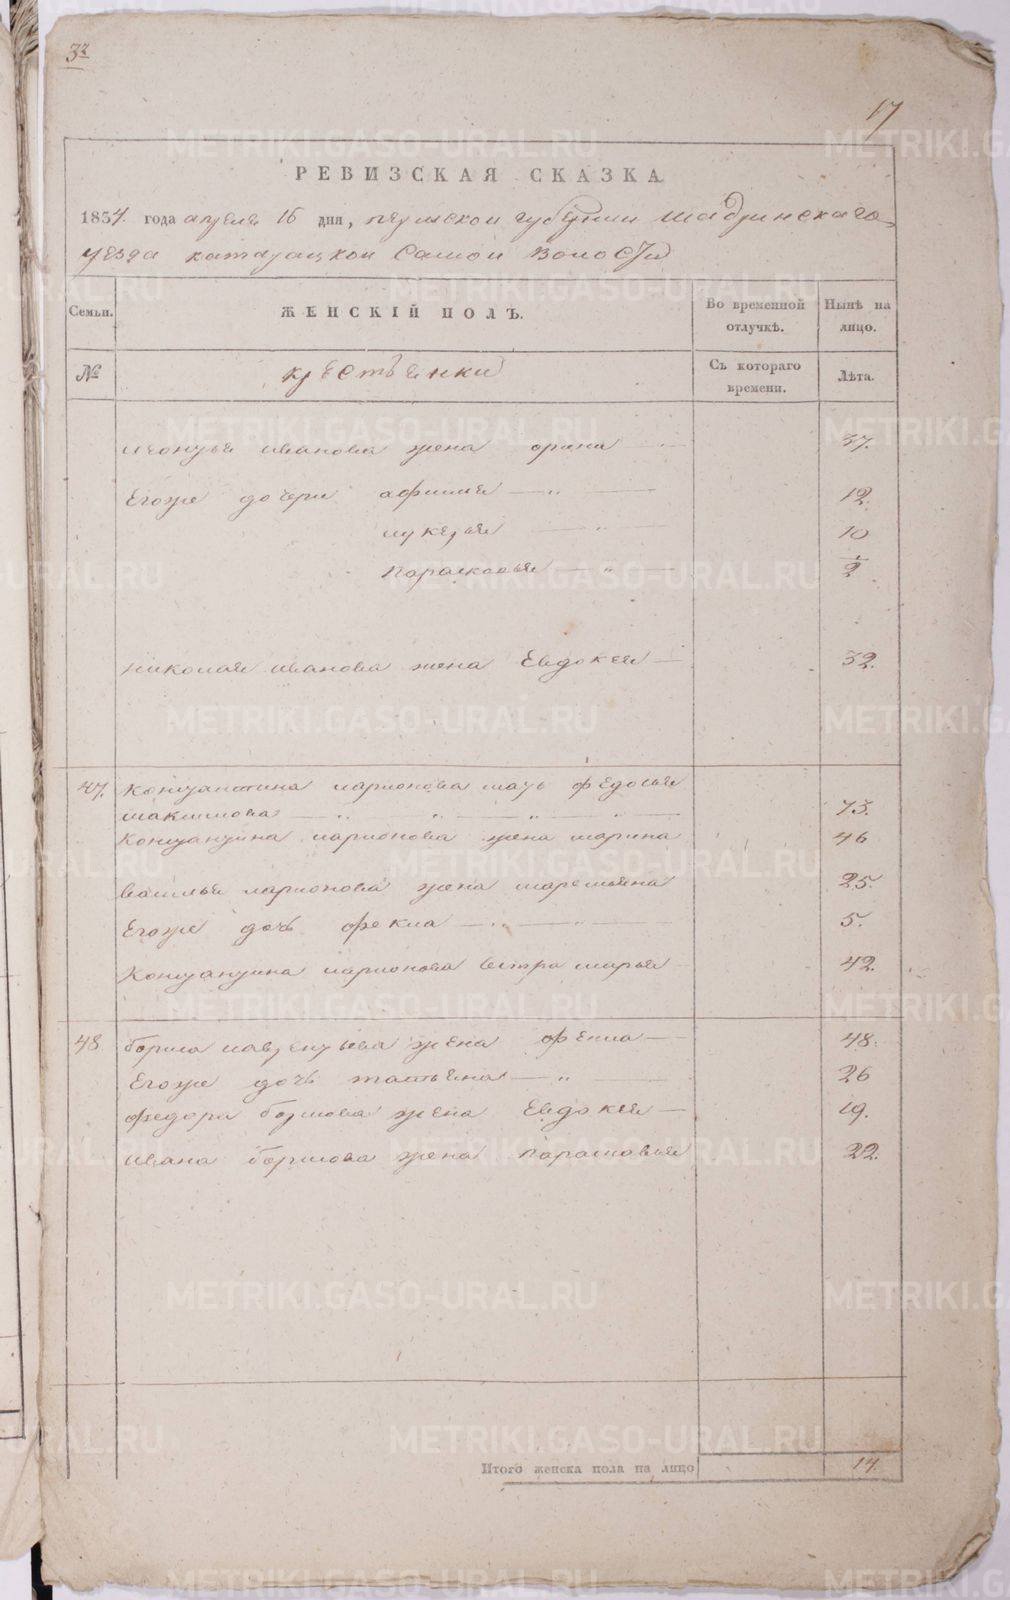 33
17
РЕВИЗСКАЯ СКАЗКА
1854 года апреля 16 дня, пермской губернии шадринскаго
уезда катайцкой Самой волости
Семьи.
ЖЕНСКІЙ ПОЛЪ.
Во временной отлучкѣ.
Нынѣ на лицо.
№
крестьянки
Съ котораго времени.
Лѣта.
иванова жена орина 37.
Егоже дочери афимия — „ — 12.
лукерья — „ — 10
парасковья — „ — 1/2
николая иванова жена Евдокея — 32.
47. Константина ларионова мать федосья
максимова — „ „ „ „ 73.
Константина ларионова жена марина 46
василья ларионова жена маремьяна 25.
Егоже дочь фекла — „ — 5.
Константина ларионова сестра марья 42.
48 бориса лаврентьева жена фекла — 48.
Егоже дочь татьяна — „ — 26
федора борисова жена Евдокея — 19.
ивана борисова жена парасковья 22.
Итого женска пола на лицо 14.
METRIKI.GASO-URAL.RU